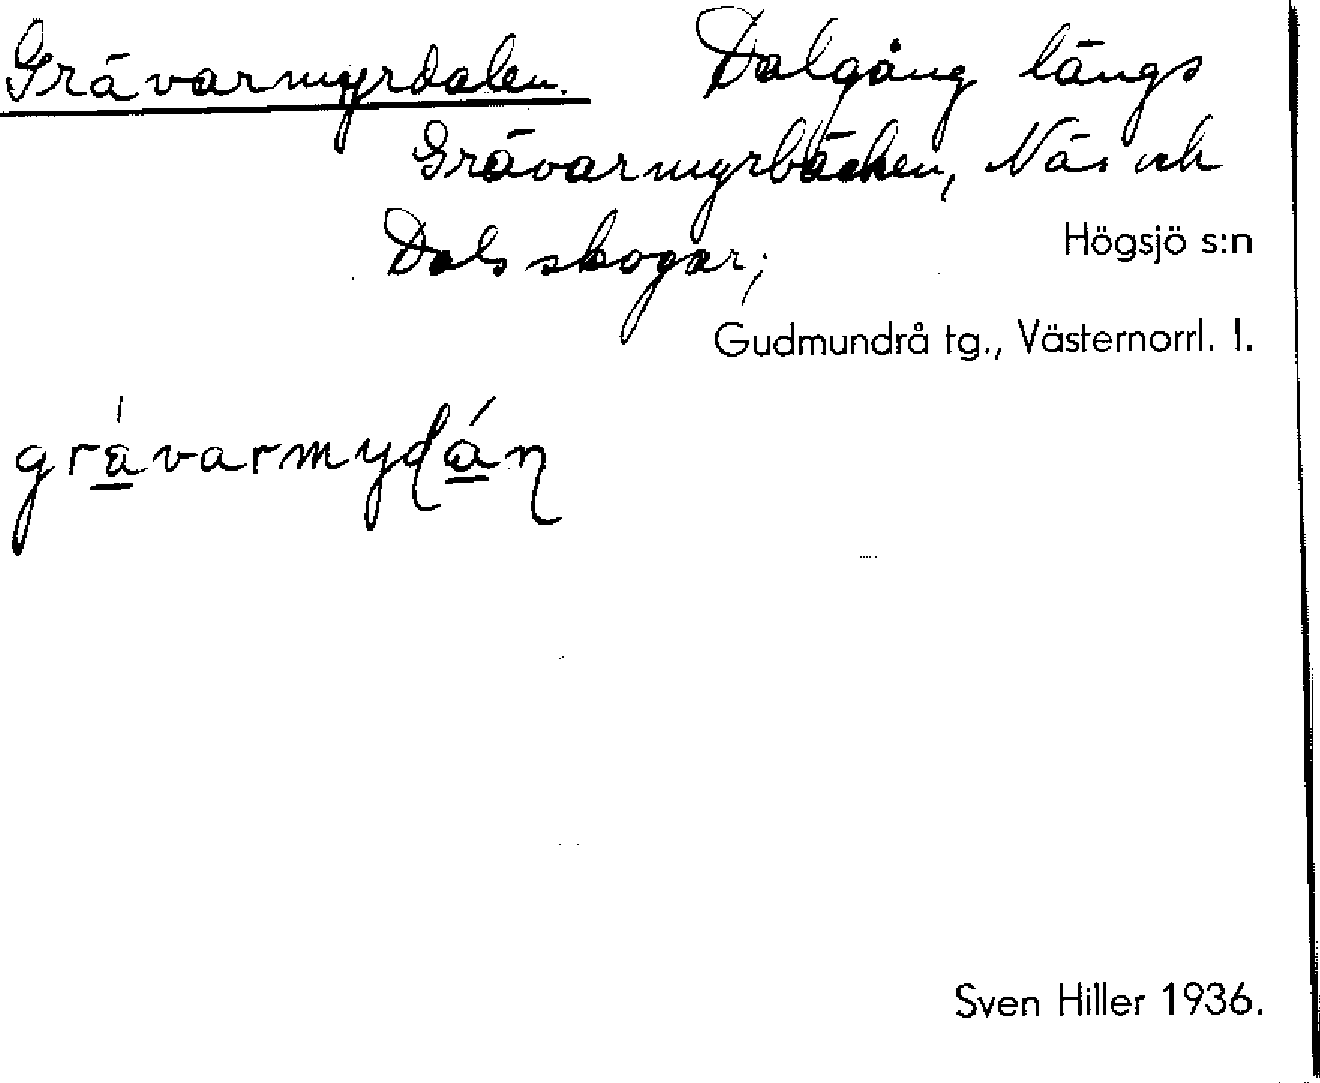 Grävarmyrdalen. Dalgång längs
Grävarmyrbäcken, Näs och
Dals skogar;
Högsjö s:n
Gudmundrå tg., Västernorrl. l.
gràvarmydá̲n
Sven Hiller 1936.